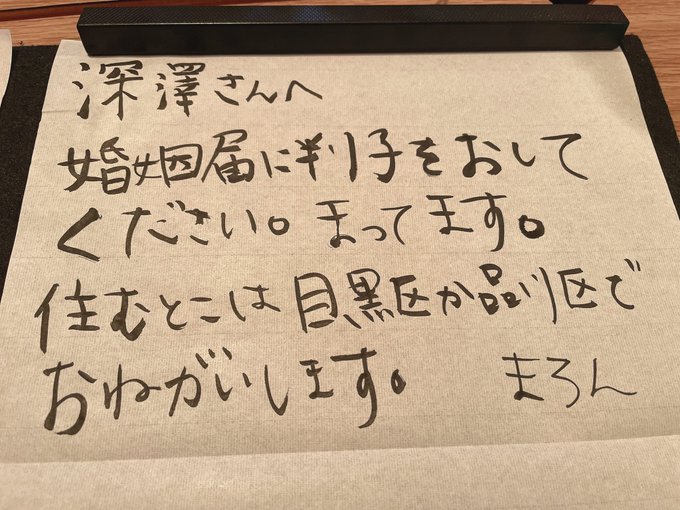 深澤さんへ
婚姻届に判子をおして
ください。まってます。
住むとこは目黒区か品川区で
おねがいします。 まろん